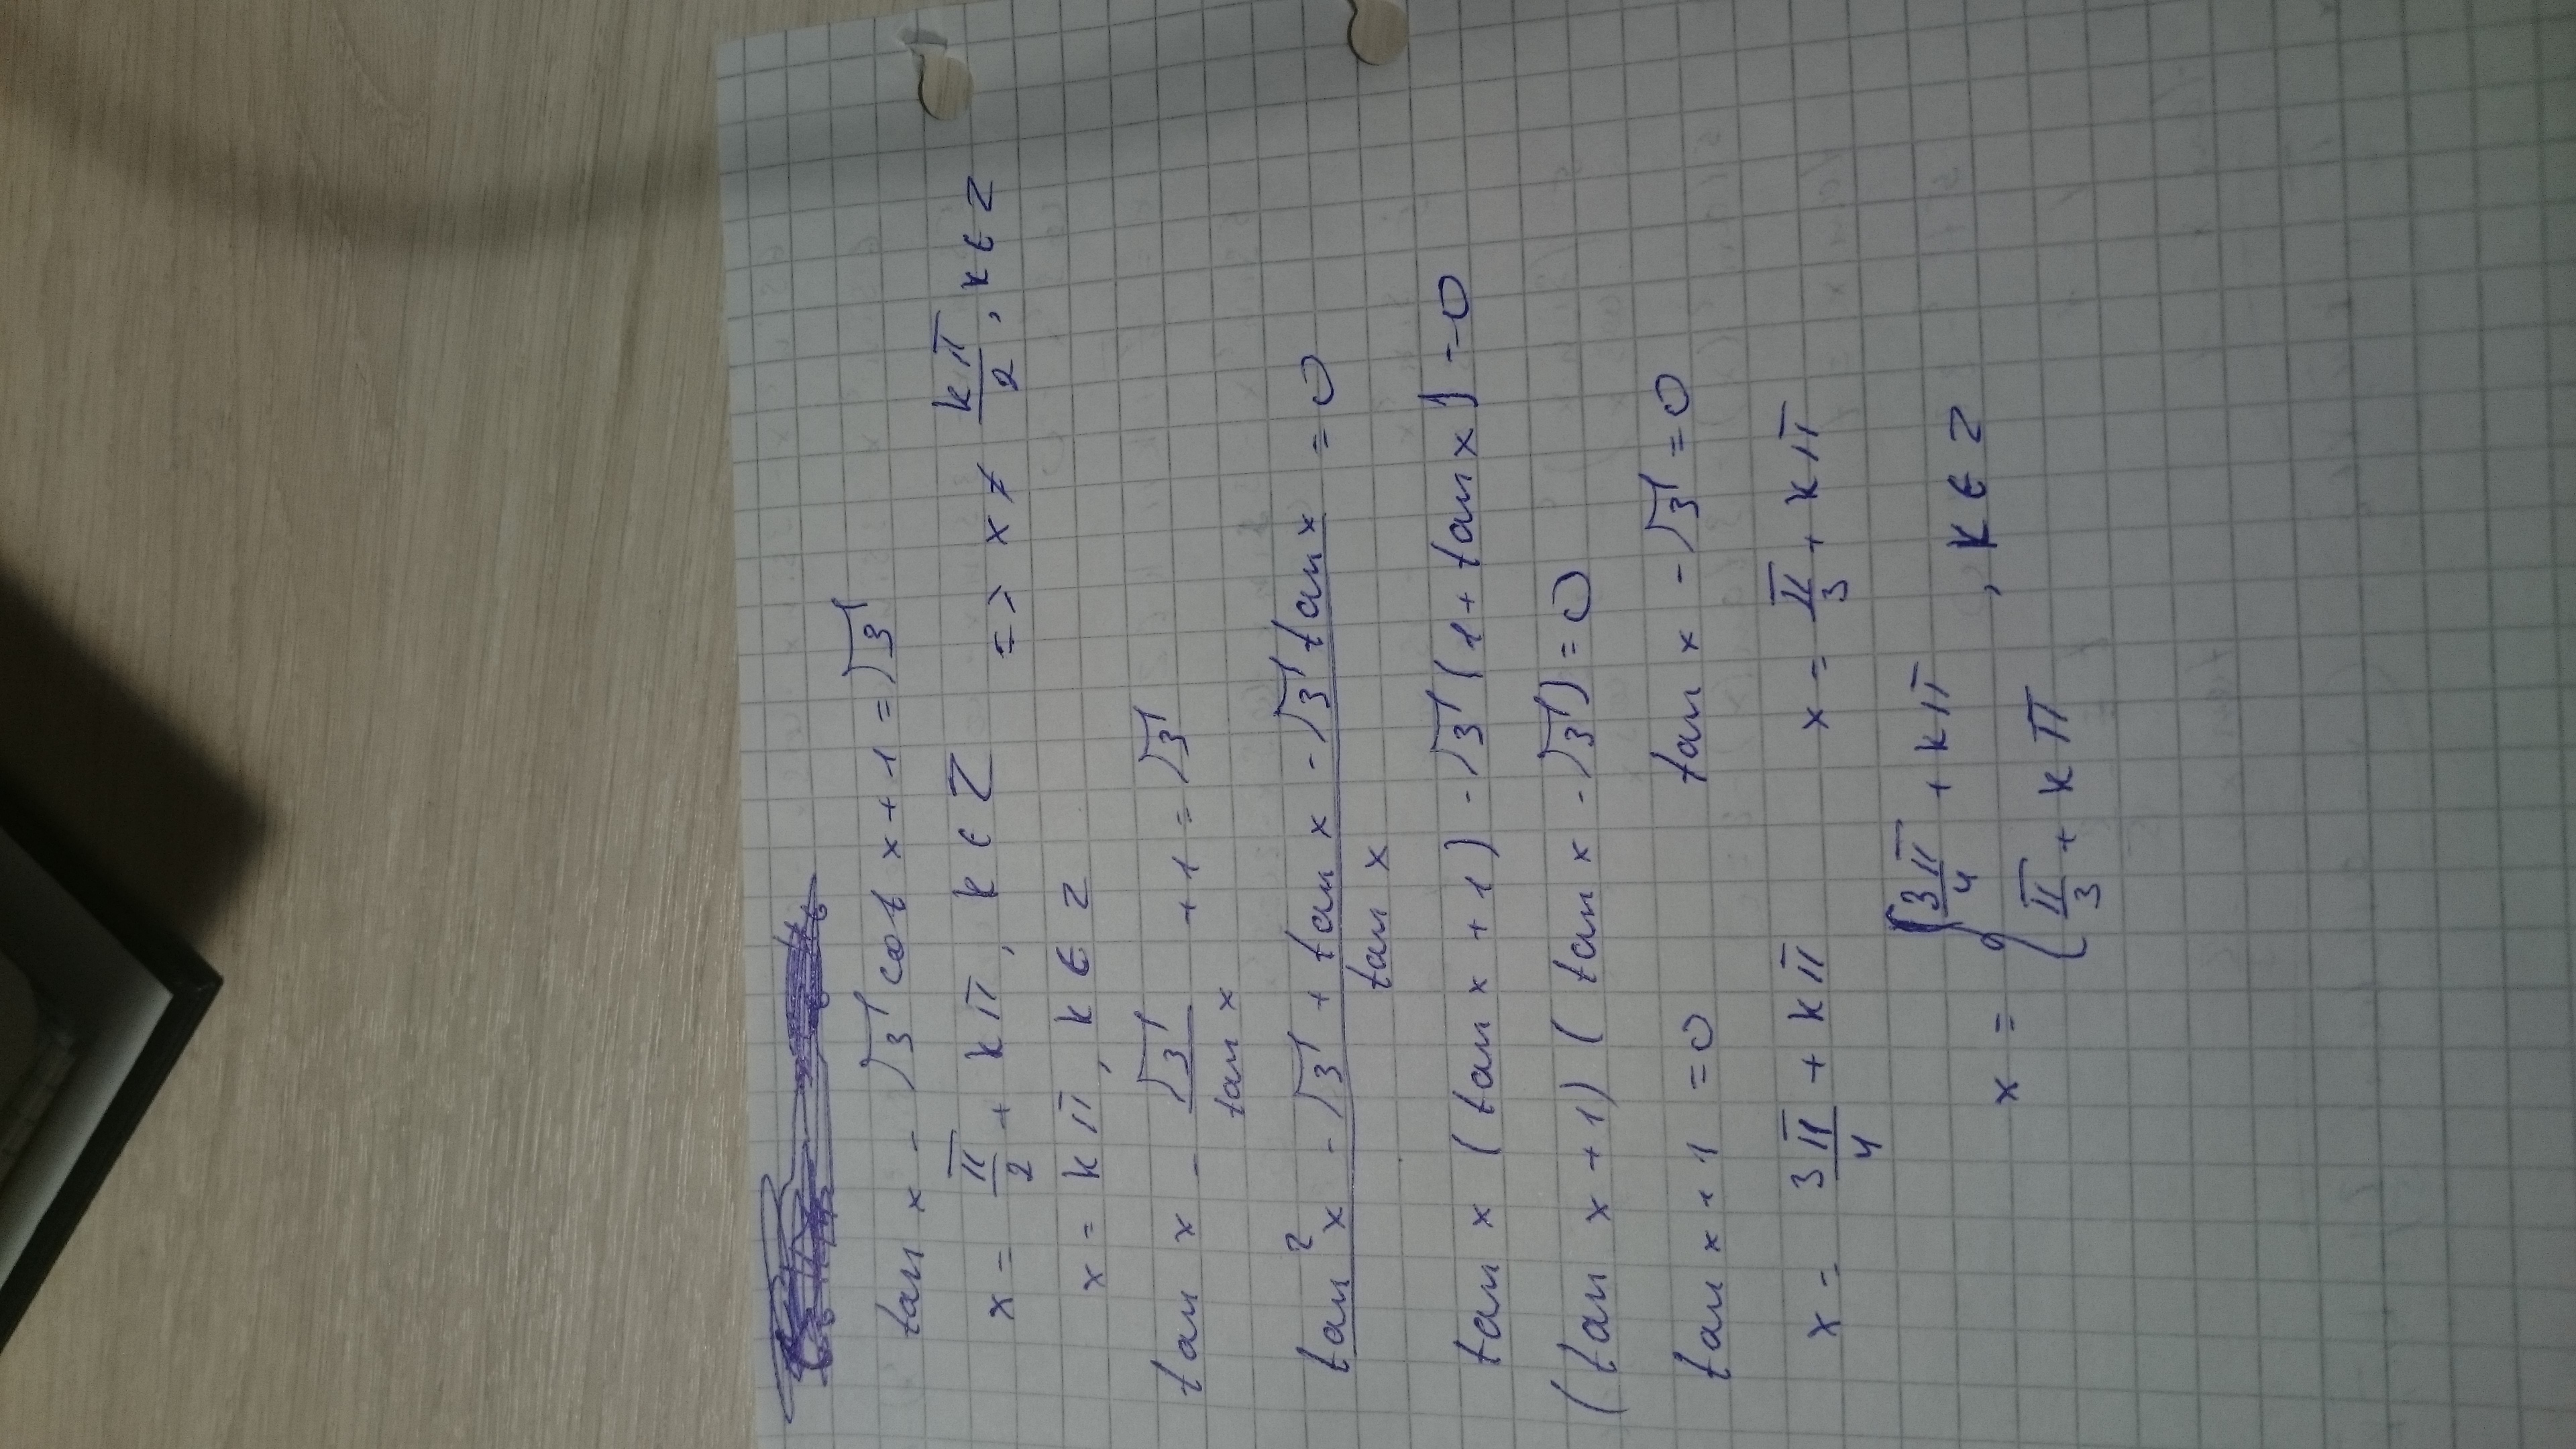 tan x - √3 cot x + 1 = √3
x = π/2 + kπ, k ∈ Z => x ≠ kπ/2, k ∈ Z
x = kπ, k ∈ Z
tan x - √3/tan x + 1 = √3
(tan² x - √3 + tan x - √3 tan x)/tan x = 0
tan x (tan x + 1) - √3 (1 + tan x) = 0
(tan x + 1) (tan x - √3) = 0
tan x + 1 = 0 tan x - √3 = 0
x = 3π/4 + kπ x = π/3 + kπ
x = { 3π/4 + kπ
π/3 + kπ , k ∈ Z